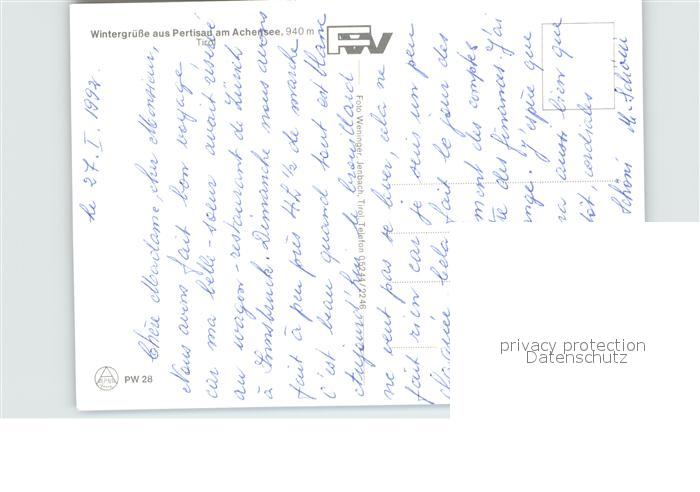 Wintergrüße aus Pertisau am Achensee, 940 m
Tirol
PW 28
Foto Weninger, Jenbach, Tirol, Telefon 05244/2246
le 27. I. 1992.
Chère Madame, cher Monsieur,
Nous avons fait bon voyage
car ma belle-soeur avait réservé
au wagon-restaurant de Zürich
à Innsbruck. Dimanche nous avons
fait à peu près 4 1/2 de marche
c'est beau quand tout est blanc
Aujourd'hui le brouillard
ne veut pas se lever, cela ne
fait rien car je suis un peu
fait le jour des
ment des comptes
des finances. J'ai
ange. J'espère que
ra aussi bien que
cordiales
Schöni M. Schöni
privacy protection
Datenschutz